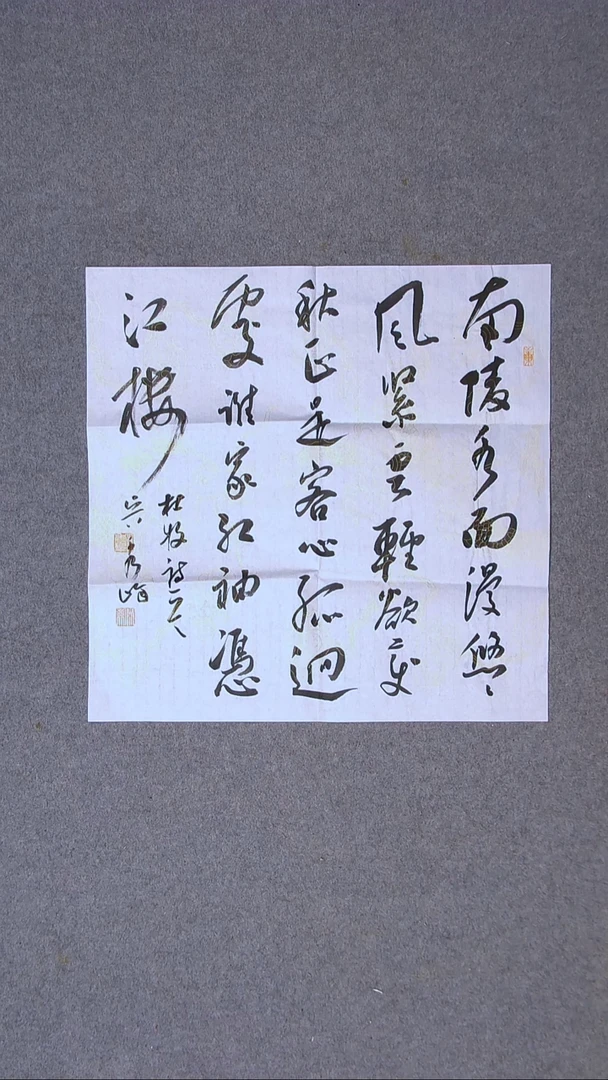 南陵水面漫悠々
風緊雲輕欲變
秋正是客心孤迥
處誰家紅袖憑
江樓
杜牧詩一首